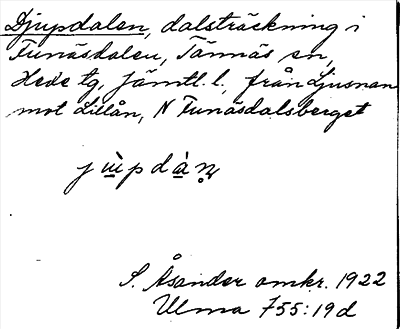 Djupdalen, dalsträckning i
Funäsdalen, Tännäs sn,
Hede tg, Jämtl. l., från Ljusnan
mot Lillån, N Funäsdalsberget
jùpdàn̥
S. Åsander omkr. 1922
Ulma 755:19d